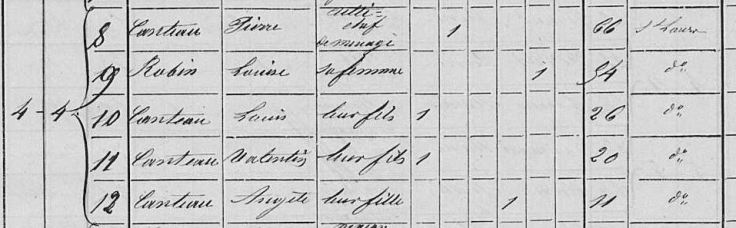 8 Canteau Pierre culti= chef de menage 1 66 St Laurs
9 Robin Louise sa femme 1 54 do
4 - 4 10 Canteau Louis leur fils 1 26 do
11 Canteau Valentin leur fils 1 20 do
12 Canteau Angèle leur fille 1 11 do